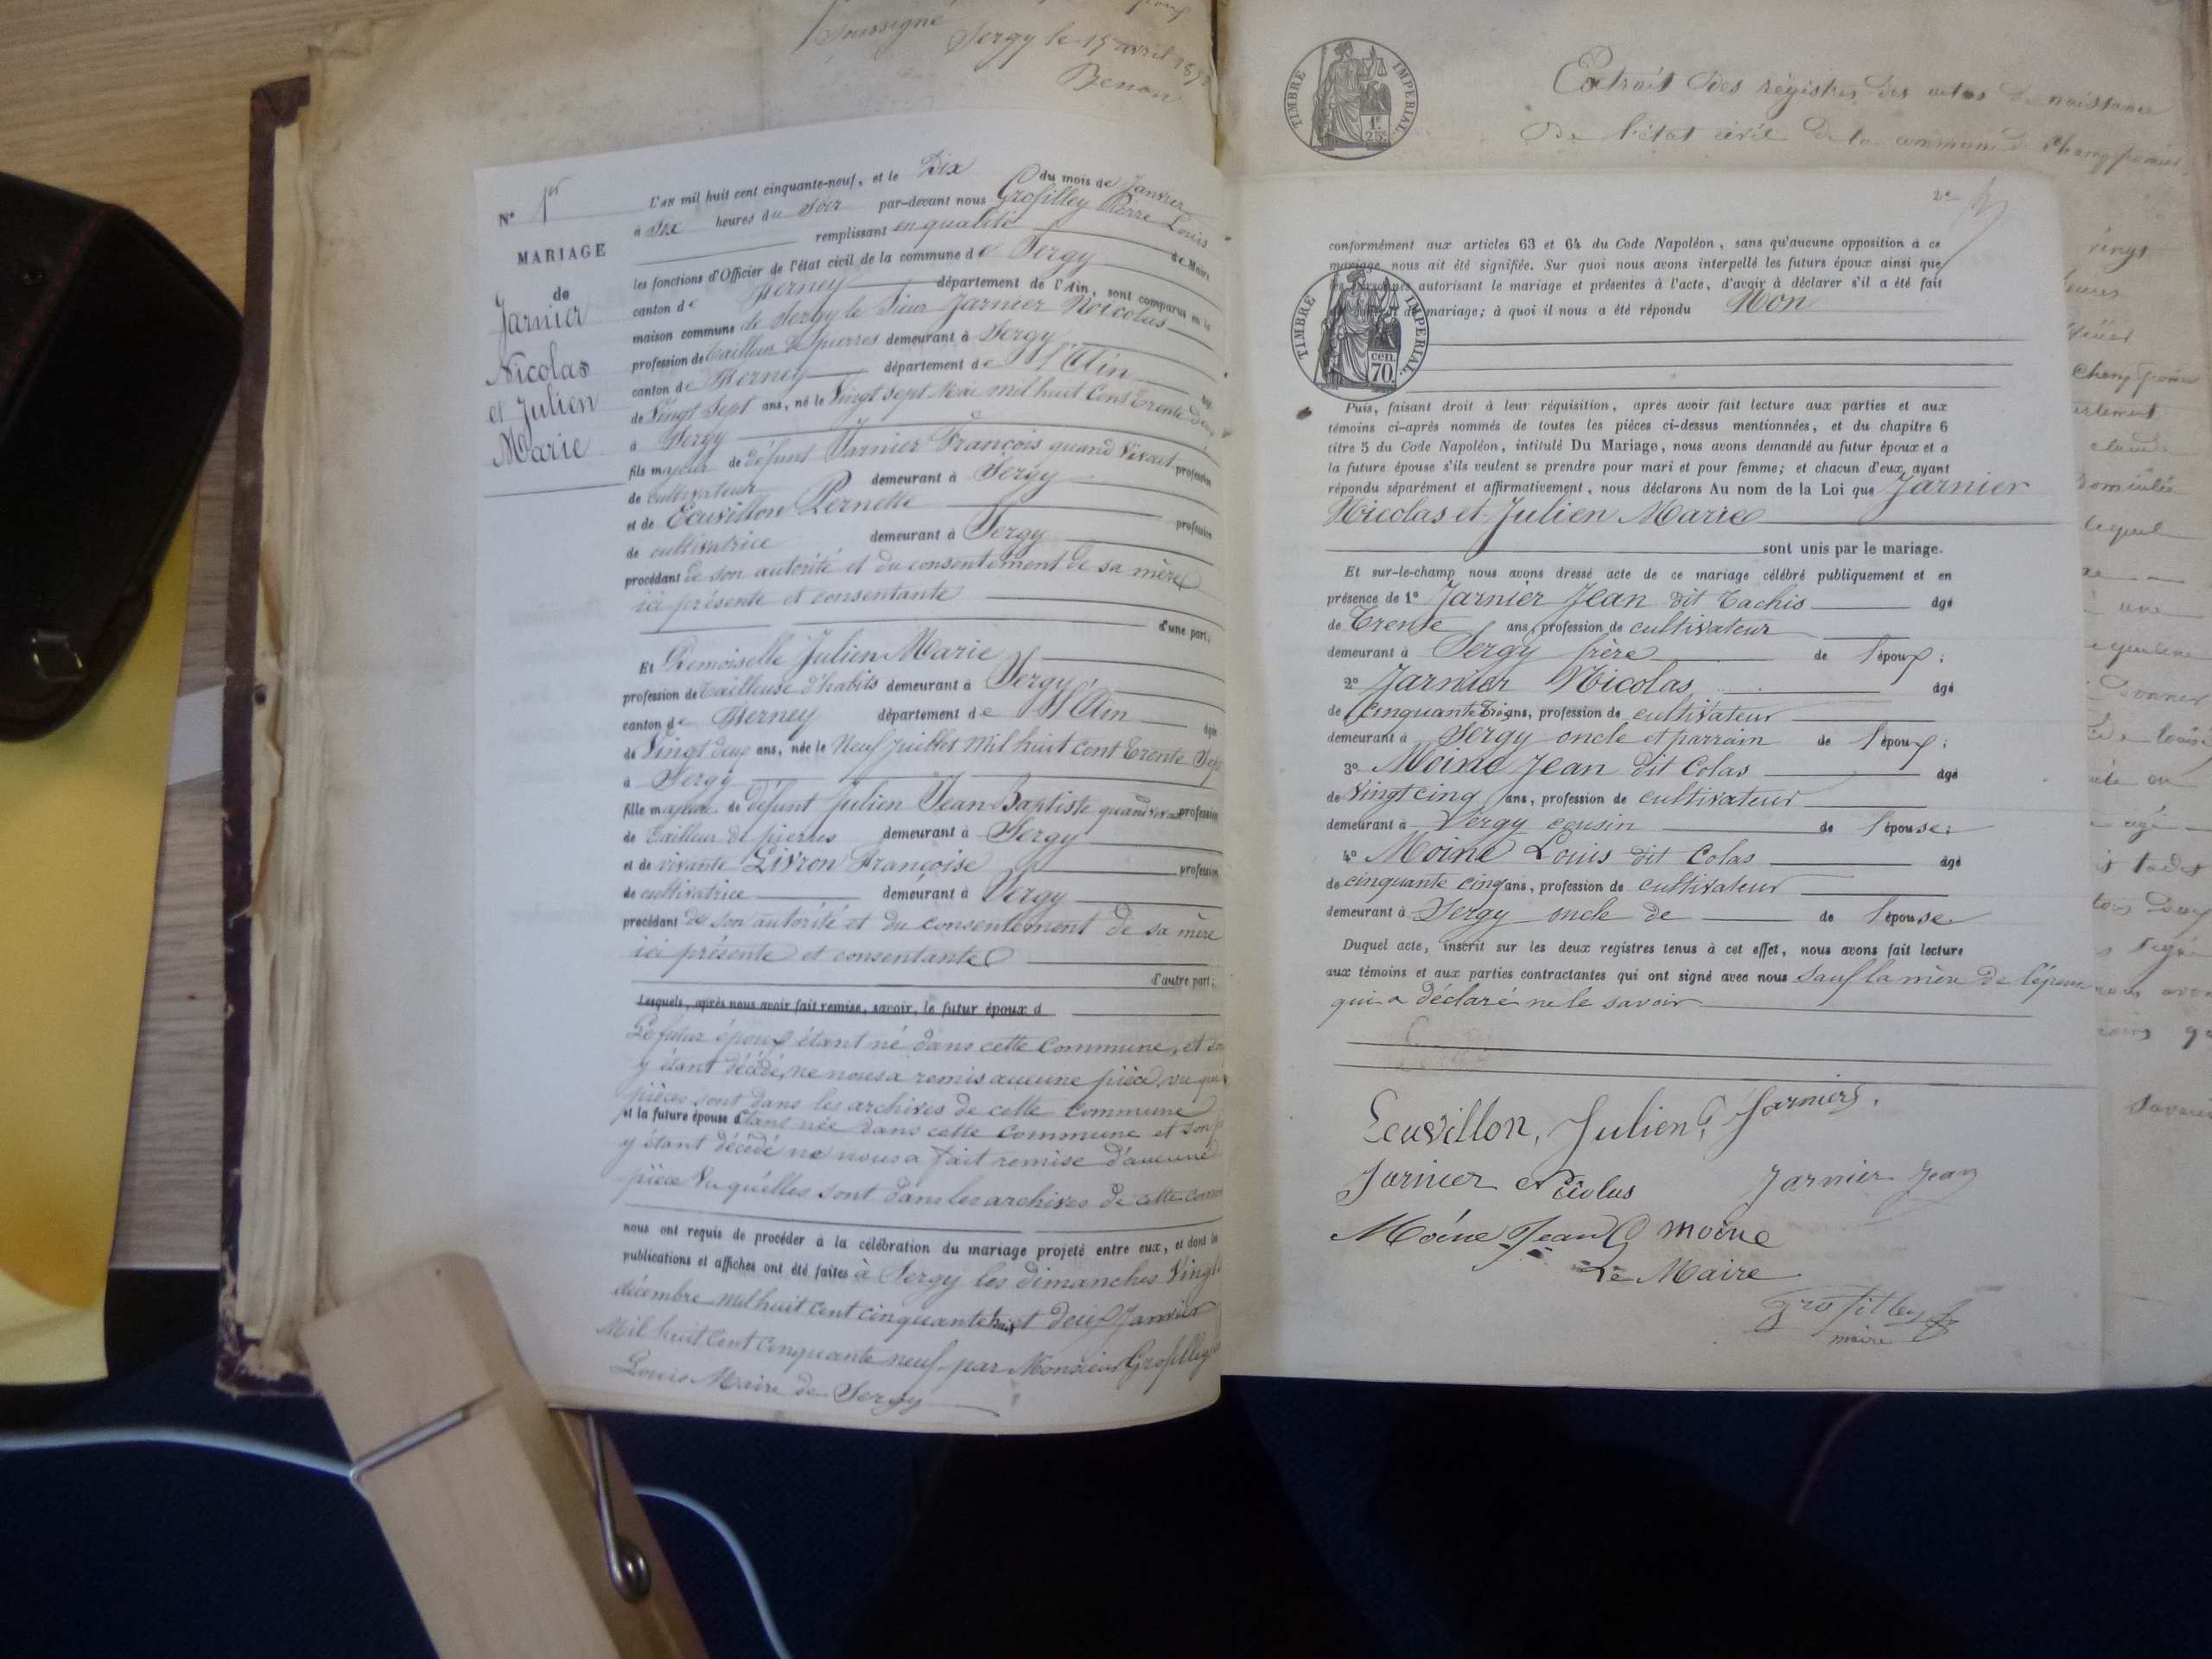 Soussigné
Sergy le 15 avril
Benon
N° 1er
MARIAGE
de
Jarnier
Nicolas
et Julien
Marie
L'an mil huit cent cinquante-neuf, et le Dix du mois de Janvier
à six heures du soir par-devant nous Grosfilley Pierre Louis
remplissant en qualité de Maire
les fonctions d'Officier de l'état civil de la commune de Sergy
canton de Ferney département de l'Ain, sont comparus en la
maison commune de Sergy le Sieur Jarnier Nicolas
profession de tailleur de pierres demeurant à Sergy
canton de Ferney département de l'Ain âgé
de Vingt Sept ans, né le Vingt sept Mai mil huit Cent Trente
à Sergy
fils majeur de défunt Jarnier François quand Vivait profession
de cultivateur demeurant à Sergy
et de Ecuvillon Pernette profession
de cultivatrice demeurant à Sergy
procédant de son autorité et du consentement de sa mère
ici présente et consentante
d'une part;
Et Demoiselle Julien Marie
profession de Tailleuse d'habits demeurant à Sergy
canton de Ferney département de l'Ain âgée
de Vingt deux ans, née le Neuf Juillet Mil huit cent Trente Sept
à Sergy
fille majeure de défunt Julien Jean-Baptiste quand vivait profession
de Tailleur de pierres demeurant à Sergy
et de vivante Livron Françoise profession
de cultivatrice demeurant à Sergy
procédant de son autorité et du consentement de sa mère
ici présente et consentante
d'autre part;
Lesquels, après nous avoir fait remise, savoir, le futur époux d
Le futur époux étant né dans cette Commune, et
y étant décédé, ne nous a remis aucune pièce, vu que
pièces sont dans les archives de cette Commune
et la future épouse étant née dans cette Commune et son
y étant décédé ne nous a fait remise d'aucune
pièce Vu qu'elles sont dans les archives de cette
nous ont requis de procéder à la célébration du mariage projeté entre eux, et dont les
publications et affiches ont été faites à Sergy les dimanches Vingt
décembre mil huit cent cinquante huit et deux Janvier
Mil huit Cent Cinquante neuf par Monsieur Grosfilley
Louis Maire de Sergy
TIMBRE IMPERIAL
1F.
25c.
Extrait des régistres des actes de naissance
de l'état civil de la commune de
2e
conformément aux articles 63 et 64 du Code Napoléon, sans qu'aucune opposition à ce
mariage nous ait été signifiée. Sur quoi nous avons interpellé les futurs époux ainsi que
les personnes autorisant le mariage et présentes à l'acte, d'avoir à déclarer s'il a été fait
de mariage; à quoi il nous a été répondu Non
TIMBRE IMPERIAL.
cen.
70.
Puis, faisant droit à leur réquisition, après avoir fait lecture aux parties et aux
témoins ci-après nommés de toutes les pièces ci-dessus mentionnées, et du chapitre 6
titre 5 du Code Napoléon, intitulé Du Mariage, nous avons demandé au futur époux et à
la future épouse s'ils veulent se prendre pour mari et pour femme; et chacun d'eux ayant
répondu séparément et affirmativement, nous déclarons Au nom de la Loi que Jarnier
Nicolas et Julien Marie
sont unis par le mariage.
Et sur-le-champ nous avons dressé acte de ce mariage célébré publiquement et en
présence de 1° Jarnier Jean dit Tachis âgé
de Trente ans, profession de cultivateur
demeurant à Sergy frère de l'époux;
2° Jarnier Nicolas, âgé
de Cinquante Trois ans, profession de cultivateur
demeurant à Sergy oncle et parrain de l'époux;
3° Moine Jean dit Colas âgé
de Vingt cinq ans, profession de cultivateur
demeurant à Sergy cousin de l'épouse;
4° Moine Louis dit Colas âgé
de cinquante cinq ans, profession de cultivateur
demeurant à Sergy oncle de de l'épouse
Duquel acte, inscrit sur les deux registres tenus à cet effet, nous avons fait lecture
aux témoins et aux parties contractantes qui ont signé avec nous sauf la mère de l'épouse
qui a déclaré ne le savoir
Ecuvillon, Julien, Jarnier.
Jarnier Nicolas Jarnier Jean
Moine Jean moine
Le Maire
Grosfilley
maire
vingt
lequel
une
donner